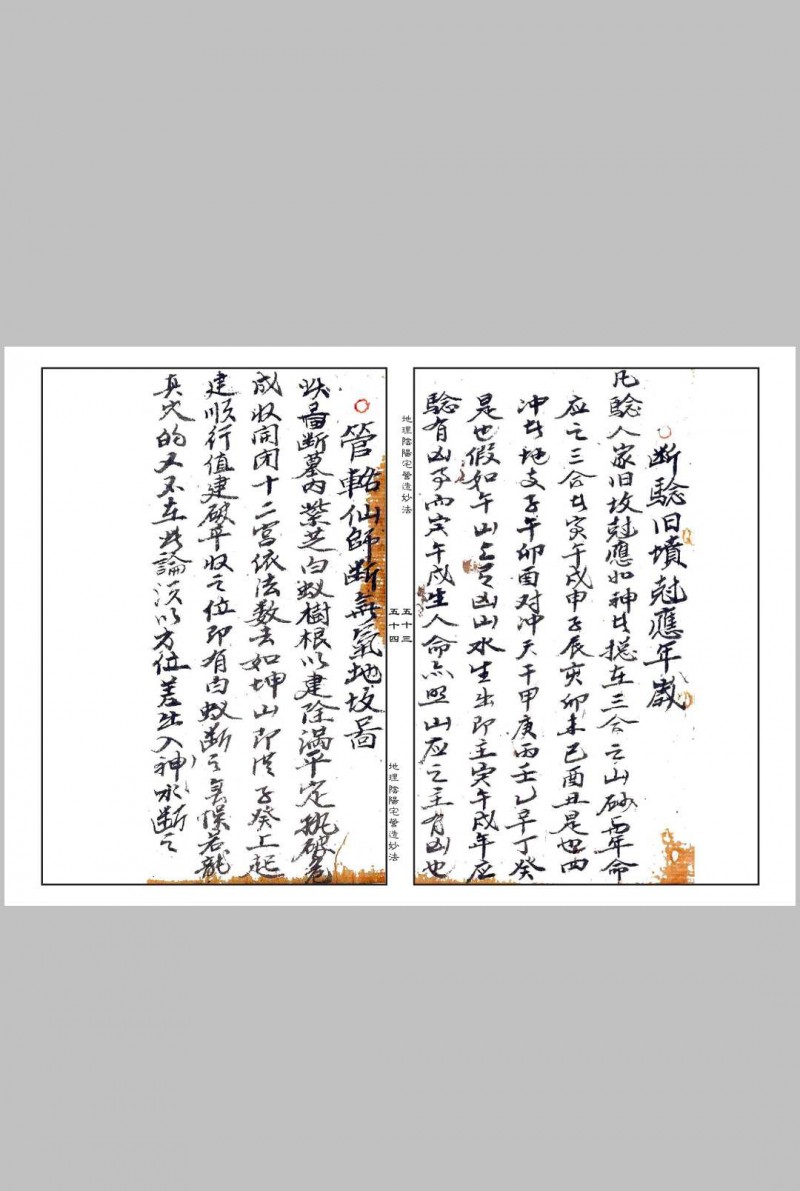 断驗旧墳尅應年歲
凡驗人家旧坟尅應如神者揔在三合之山砂与年命
应之三合者寅午戌申子辰亥卯未巳酉丑是也四
冲者地支子午卯酉对冲天干甲庚丙壬乙辛丁癸
是也假如午山上有凶山水生出即主寅午戌年应
驗有凶事而寅午戌生人命亦照山应之主有凶也
地理陰陽宅營造妙法
五十三
五十四
地理陰陽宅營造妙法
管輅仙師断無氣地坟啚
此啚断墓内紫芝白蚁樹根以建除满平定执破危
成收開闭十二宫依法数去如坤山即從子癸上起
建順行值建破平收之位即有白蚁断之無误若龍
真穴的又不在此論須以方位差出入神水断之